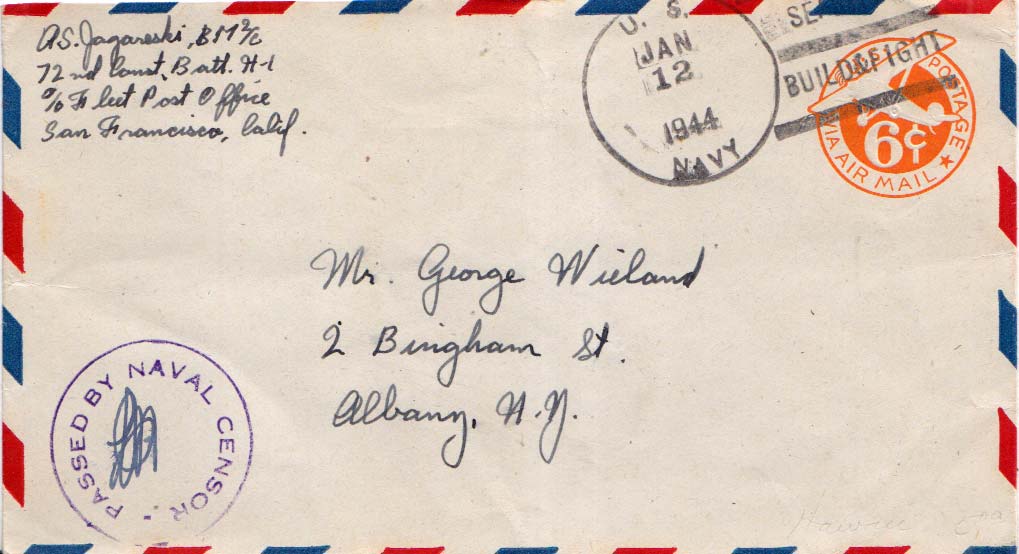 A.S. Jagareski, BM2/c
72nd Const. Batt. H-1
c/o Fleet Post Office
San Francisco, Calif.
U. S.
JAN
12
1944
NAVY
BUILD&FIGHT
U.S. POSTAGE
6¢
VIA AIR MAIL
Mr. George Wieland
2 Bingham St.
Albany, N.Y.
PASSED BY NAVAL CENSOR
Hawaii